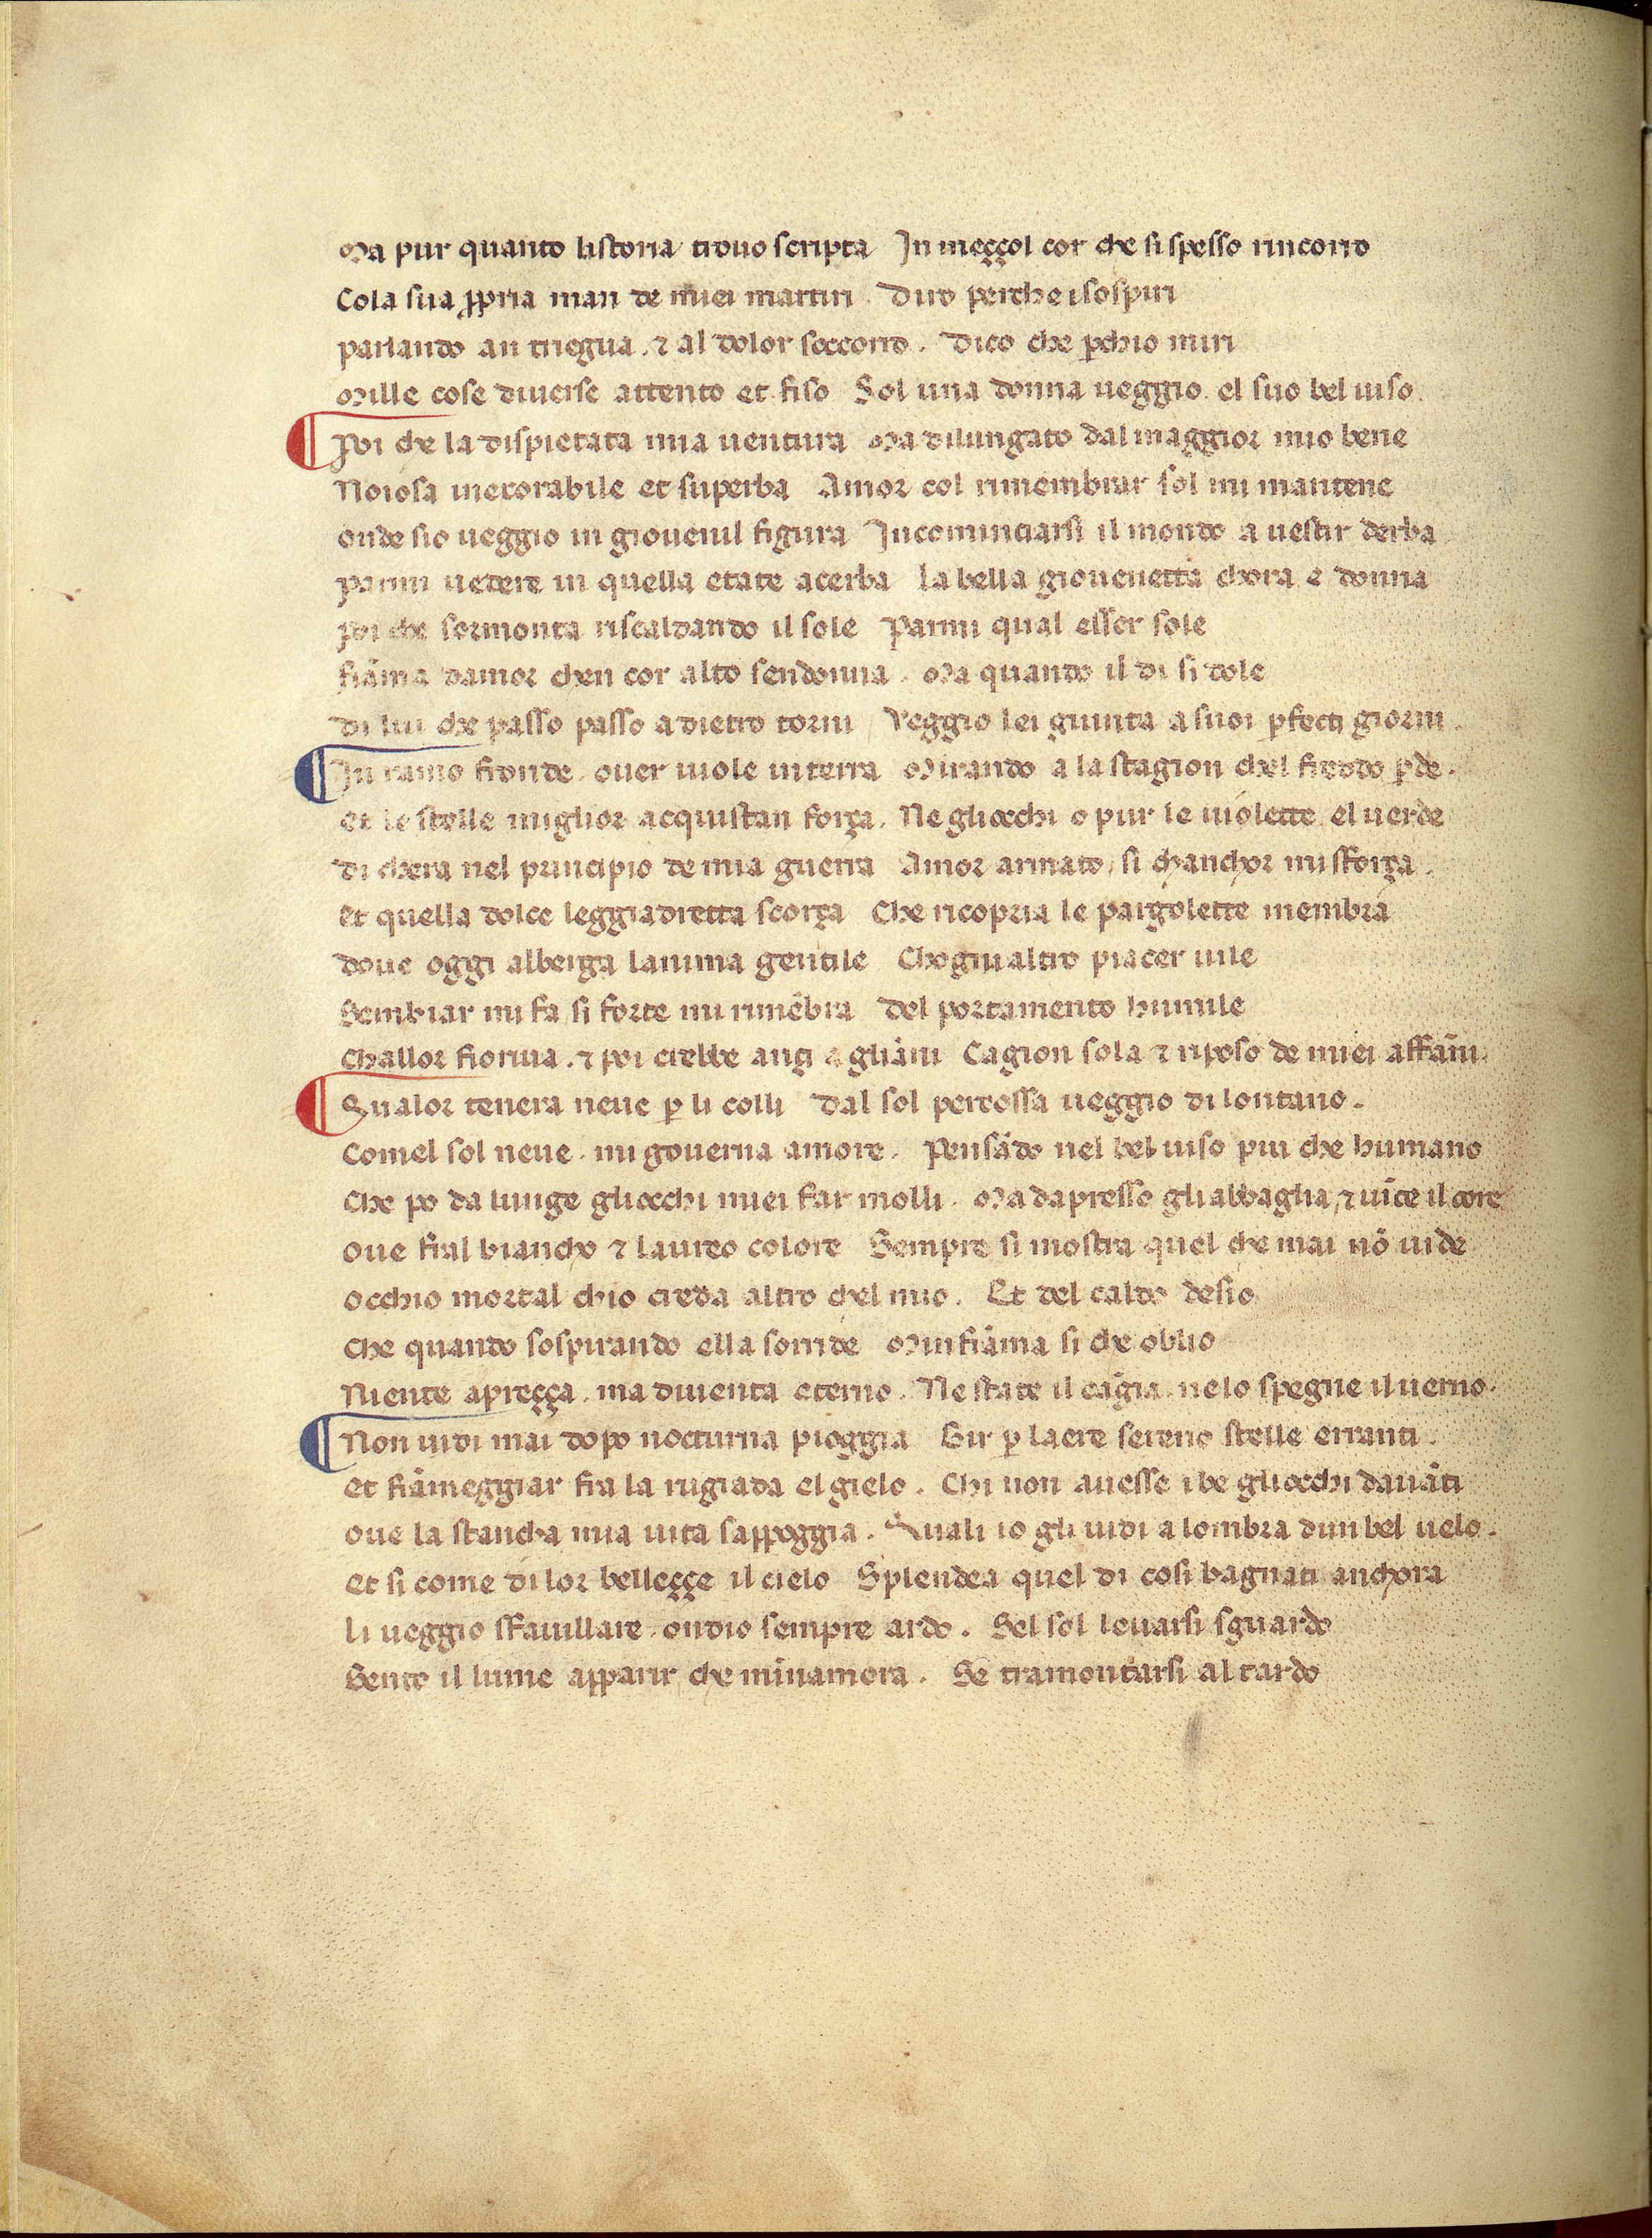 Ma pur quanto listoria trouo scripta In meççol cor che si spesso rincorro
Cola sua ꝓpria man de miei martiri . Diro perche i sospiri
parlando an triegua . ⁊ al dolor soccorro . Dico che ꝑchio miri
Mille cose diuerse attento et fiso Sol una donna ueggio . el suo bel uiso .
Poi che la dispietata mia uentura Ma dilungato dal maggior mio bene
Noiosa inexorabile et superba Amor col rimembrar sol mi mantene
onde sio ueggio in giouenil figura Incominciarsi il mondo a uestir derba
parmi uedere in quella etate acerba la bella giouenetta chora e donna
poi che sormonta riscaldando il sole Parmi qual esser sole
fiãma damor chen cor alto sendonna . Ma quando il di si dole
di lui che passo passo a dietro torni / Veggio lei giunta a suoi ꝑfecti giorni .
In ramo fronde . ouer uiole in terra Mirando a la stagion chel freddo ꝑde .
et le stelle miglior acquistan força . Negliocchi o pur le uiolette . el uerde
di chera nel principio de mia guerra Amor armato / si chanchor mi sforça .
et quella dolce leggiadretta scorça Che ricopria le pargolette membra
doue oggi alberga lanima gentile Chogni altro piacer uile
Sembiar mi fa si forte mi rimẽbra del portamento humile
Challor fioriua . ⁊ poi crebbe ançi agliãni Cagion sola ⁊ riposo de miei affãni .
Qualor tenera neue ꝑ li colli dal sol percossa ueggio di lontano .
Comel sol neue . mi gouerna amore . Pensãdo nel bel uiso piu che humano
Che po da lunge gliocchi miei far molli . Ma dapresso gli abbaglia / ⁊ uĩce il core
oue fral biancho ⁊ laureo colore Sempre si mostra quel che mai nõ uide
occhio mortal chio creda altro chel mio . Et del caldo desio
Che quando sospirando ella sorride Minfiãma si che oblio
Niente apreçça . ma diuenta eterno . Ne state il cãgia . ne lo spegne il uerno .
Non uidi mai dopo nocturna pioggia Gir ꝑ laere sereno stelle erranti .
et fiãmeggiar fra la rugiada el gielo . Chi non auesse i be gliocchi dauãti
oue la stancha mia uita sappoggia . Quali io gli uidi a lombra dun bel uelo .
et si come di lor belleççe il cielo Splendea quel di cosi bagnati anchora
li ueggio sfauillare . ondio sempre ardo . Sel sol leuarsi sguardo
Sento il lume apparir che minnamora . Se tramontarsi al tardo